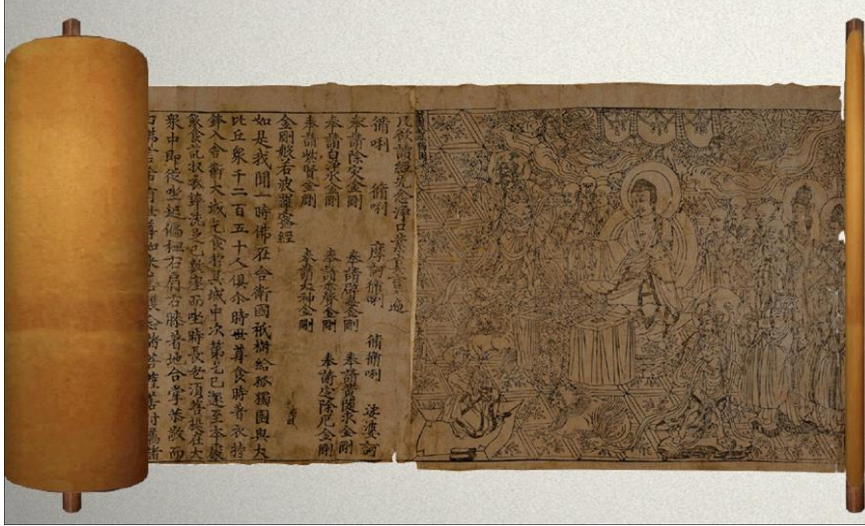 凡欲讀經先念淨口業真言一遍
脩唎 脩唎 摩訶脩唎 脩脩唎 娑婆訶
奉請除災金剛 奉請辟毒金剛 奉請黃隨求金剛
奉請白淨水金剛 奉請赤聲金剛 奉請定除厄金剛
奉請紫賢金剛 奉請大神金剛
金剛般若波羅蜜經
如是我聞一時佛在舍衛國祇樹給孤獨園與大
比丘眾千二百五十人俱尒時世尊食時著衣持
鉢入舍衛大城乞食於其城中次第乞已還至本處
飯食訖收衣鉢洗足已敷座而坐時長老須菩提在大
眾中即從座起偏袒右肩右膝著地合掌恭敬而
白佛言希有世尊如來善護念諸菩薩善付囑諸